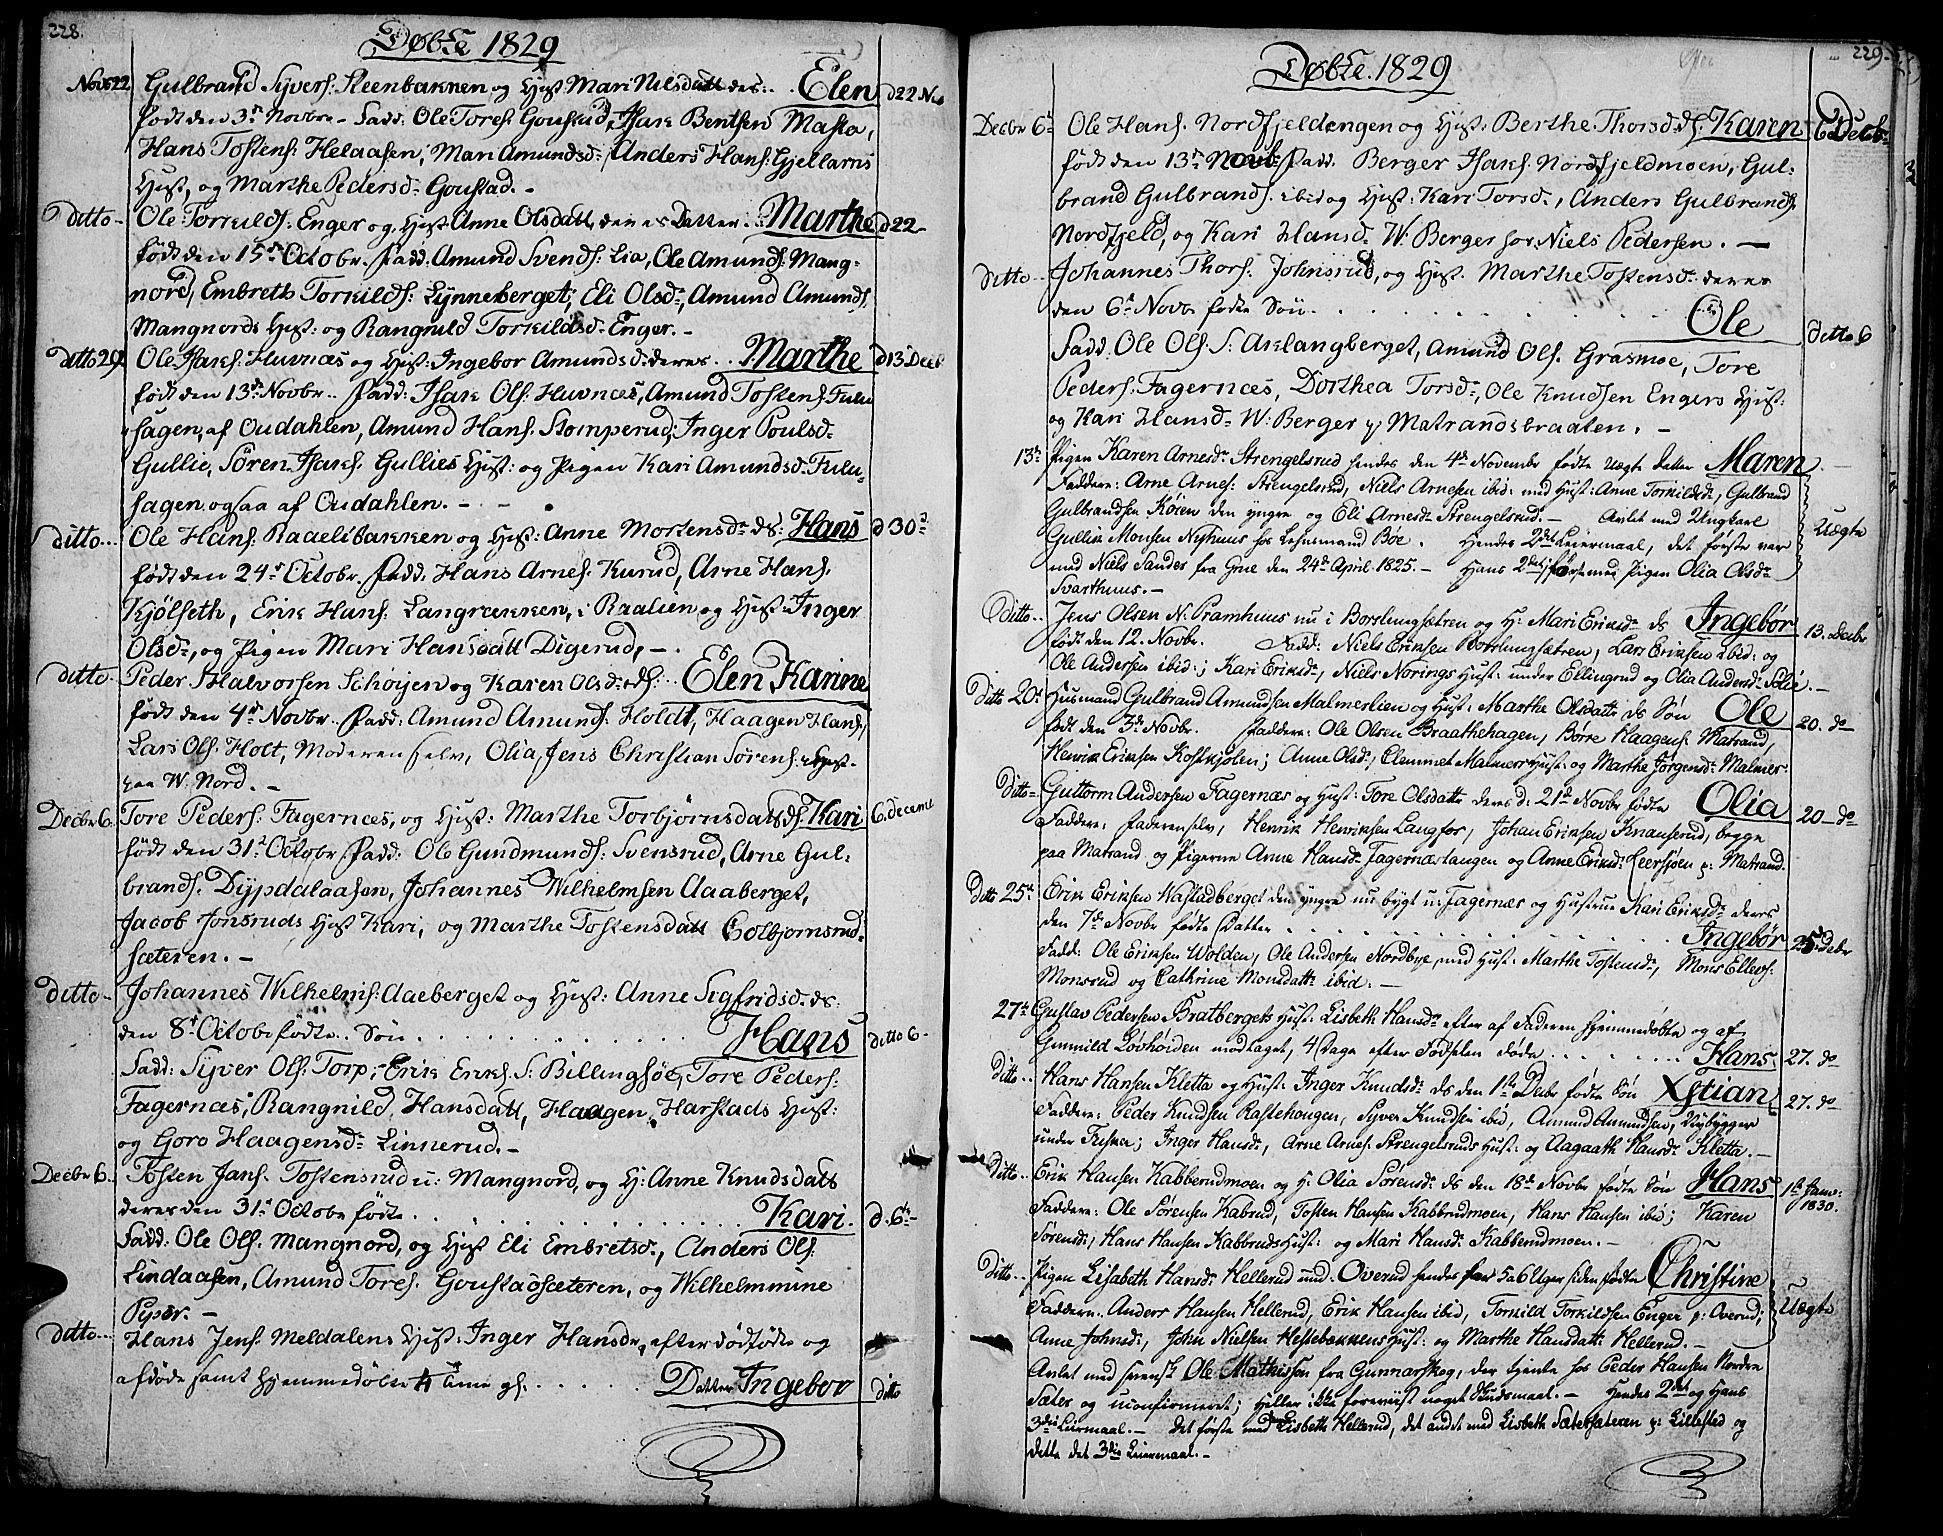 228.
Døbte 1829
Novb 22 Gulbrand Syvers: Steenbakken og Hust: Mari Nilsdatt des: . . Elen d 22 Nov
født den 3de Novbr – Fadd: Ole Tores: Goustad, Isak Bentsen Masta,
Hans Tostens: Helaasen, Mari Amundsd: Anders Hans: Gjellarns
Hust, og Marthe Pedersd: Goustad. –
ditto – Ole Torkilds: Enger og Hust Anne Olsdatt, deres Datter . . Marthe d 22 –
født den 15de Octobr. Fadd: Amund Svends: Lia, Ole Amunds: Mang=
nord, Embreth Torkilds: Lynneberget; Eli Olsd:, Amund Amunds.
Mangnords Hust: og Rangnild Torkildsd: Enger. –
ditto 29. Ole Isaks: Huvnæs og Hust: Ingebor Amundsd: deres . . Marthe d 13 Decb
født den 13de Novbr. Fadd: Isak Ols: Huvnæs, Amund Tostens: Fulu
hagen, af Oudahlen, Amund Hans: Stomperud, Inger Poulsd:
Gullie, Sören Isaks: Gullies Hust: og Pigen Kari Amundsd: Fulu=
hagen ogsaa af Oudahlen. –
ditto . . . Ole Hans: Raaelibakken og Hust: Anne Mortensd: ds: Hans d 30te
født den 24de Octobr. Fadd. Hans Arnes: Kurud, Arne Hans:
Kjölseth, Erik Hans: Langrækken, i Raalien og Hust: Inger
Olsd:, og Pigen Mari Hansdatt Digerud, –
ditto – Peder Halvorsen Schøyen og Karen Olsd: ds: . . Elen Karine
født den 4de Novbr. Fadd: Amund Amunds: Holdt, Haagen Hans:,
Lars Ols: Holt, Moderen selv, Olia, Jens Christian Sörens: Hust
paa W: Nord. –
Decbr 6. Tore Peders: Fagernæs, og Hust: Marthe Torbjörnsdatt ds: Kari 6. Decemb
født den 31te Octobr. Fadd: Ole Gundmunds: Svensrud, Arne Gul=
brands. Dypdalaasen, Johannes Wilhelmsen Aaberget,
Jacob Jonsruds Hust Kari, og Marthe Tostensdatt Colbjörnsrud=
sæteren. –
ditto – Johannes Wilhelms: Aaeberget og Hust: Anne Sigfridsd: ds:
den 8de Octobr fødte . . Sön . . . . . . Hans ditto 6 –
Fadd: Syver Ols: Torp, Erik Eriks: S: Billingsöe, Tore Peders:
Fagernæs, Rangnild, Hansdatt, Haagen Harstads Hust:
og Goro Haagensd: Linnerud. –
Decbr 6. Tosten Jans: Tostensrud u: Mangnord, og H: Anne Knudsdatt
deres den 31te Octobr fødte . . . . . . . Kari. d. 6te –
Fadd: Ole Ols. Mangnord, og Hust Eli Embretsd:, Anders Ols:
Lindaasen, Amund Tores: Goustadsæteren, og Wilhelmmine
Pyser. –
ditto . . . Hans Jens: Meldalens Hust: Inger Hansdr, efter dødfödte og
afdøde samt hjemmedøbte gl. . . . . . Datter Ingebor ditto
229.
Døbte. 1829
Decbr 6te Ole Hans: Nordfjeldengen og Hust: Berthe Thorsd: ds: Karen 6te Decb
født den 13de Novbr Fadd. Berger Isaks: Nordfjeldmoen, Gul=
brand Gulbrands. ibid og Hust: Kari Torsd:, Anders Gulbrands.
Nordfjeld, og Kari Hansd: W. Berger hos Niels Pedersen. –
Ditto . . Johannes Thors: Johnsrud, og Hust. Marthe Tostensd: deres
den 6te Novbr fødte Sön . . . . . . . Ole ditto 6
Fadd. Ole Ols. S: Aklangberget, Amund Ols. Grasmoe, Tore
Peders: Fagernæs, Dorthea Torsd:, Ole Knudsen Engers Hust:
og Kari Hansd: W: Berger p: Matrandsbraaten. –
13de Pigen Karen Arnesd: Strengelsrud hendes den 4de Novembr fødte Uægte Datter Maren. –
Faddere: Arne Arnes: Strengelsrud, Niels Arnesen ibid: med Hust: Anne Torkildsd:, Gulbrand
Gulbrandsen Köien den yngre og Eli Arnesd: Strengelsrud. – Avlet med Ungkarl
Gullik Monsen Nyhuus hos Lehnsmand Boe. Hendes 2det Leiermaal, det første var Uægte
med Niels Sandes fra Grue den 24de April 1825. – Hans 2det, første med Pigen Olia Olsd:
Svarthuus. –
Ditto . . Jens Olsen N: Pramhuus nu i Borslungsetren og H: Mari Eriksd: ds Ingebør 13. Decbr
født den 12. Novbr. Fadd: Niels Eriksen Borslungsætren, Lars Eriksen ibid: og
Ole Andersen ibid:; Kari Eriksd:, Niels Norings Hust: under Ellingsrud og Olia Andersd: Solie. –
Ditto 20de Husmand Gulbrand Amundsen Malmerlien og Hust: Marthe Olsdatt: ds Sön Ole 20. do
født den 3de Novbr. Faddere: Ole Olsen Braathehagen, Börre Haagens: Matrand,
Henrik Eriksen Kostkjölen; Anne Olsd:, Clemmet Malmers Hust: og Marthe Jörgensd: Malmer
Ditto – Guttorm Andersen Fagernæs og Hust: Tore Olsdatt: deres d: 21de Novbr fødte Olia 20 – do
Faddere: Faderen selv, Henrik Henriksen Langfos, Johan Eriksen Knauserud, begge
paa Matrand og Pigerne Anne Hansd: Fagernæstangen og Anne Eriksd: Leersjöen p: Matrand.
Ditto 25de Erik Eriksen Nastadberget den yngre nu bygt u: Fagernæs og Hustrue Kari Eriksd: deres
den 7de Novbr fødte Datter . . . . . . . . Ingebør 25de Debr
Fadd: Ole Eriksen Wolden, Ole Andersen Nordbye, med Hust: Marthe Tostensd:, Mons Ellevs:
Monsrud og Cathrine Monsdatt: ibid: –
27de Gustav Pedersen Bratbergets Hust: Lisbeth Hansd: efter af Faderen hjemmedöbte og af
Gunnild Lövhöiden modtaget, 4 Dage efter Fødselen døde . . . . . . Hans 27. do
Ditto . . Hans Hansen Kletta og Hust: Inger Knudsd: ds den 1ste Debr fødte Sön Xstian 27. do
Faddere: Peder Knudsen Rastehougen, Syver Knudsen ibid, Amund Amundsen, Nybygger
under Fusker; Inger Hansd:, Arne Arnes: Strengelsruds Hust: og Aagaath Hansd: Kletta. –
Ditto . . Erik Hansen Kabberudmoen og H: Olia Sörensd: ds den 18de Novbr fødte Sön Hans 1ste Janv: 1830.
Faddere: Ole Sörensen Kabrud, Tosten Hansen Kabbrudmoen, Hans Hansen ibid; Karen
Sörensd:, Hans Hansen Kabbruds Hust: og Mari Hansd: Kabberudmoen. –
Ditto . . Pigen Lisabeth Hansd: Hellerud und. Overud hendes for 5 a 6 Uger siden fødte Christine
Faddere: Anders Hansen Hellerud, Erik Hansen ibid, Torkild Torkildsen Enger p: Overud; Uægte
Anne Johnsd:, John Nielsen Hestebækkens Hust: og Marthe Hansdatt: Hellerud. –
Avlet med svensk Ole Mathissen fra Gunnarskog, der tjente hos Peder Hansen Nordre
Sæter og uconfirmeret; heller ikke foreviist noget Skudsmaal. – Hendes 2det og Hans
3die Leiermaal. – Det første med Lisbeth Hellerud, det andet med Lisbeth Sætersæteren p: Lillested og
dette det 3die Leiermaal. –